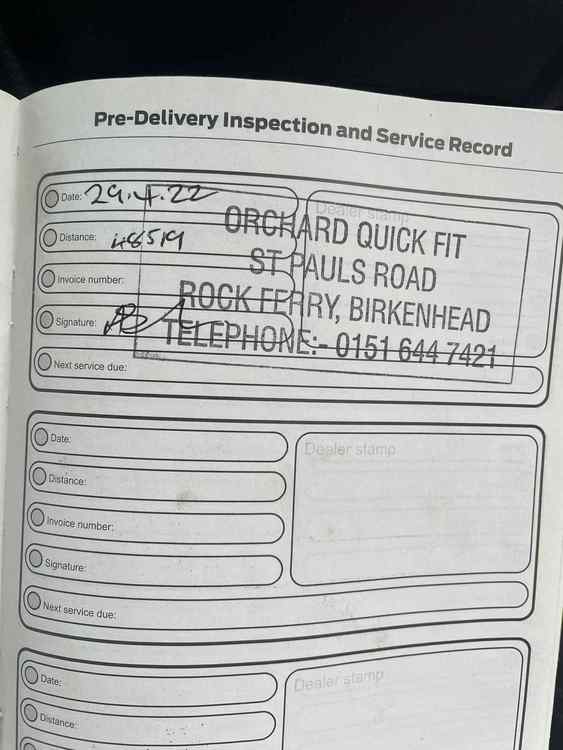 Pre-Delivery Inspection and Service Record
Date: 29.4.22
Dealer stamp
Distance: 48519
Invoice number:
Signature:
Next service due:
ORCHARD QUICK FIT
ST PAULS ROAD
ROCK FERRY, BIRKENHEAD
TELEPHONE:- 0151 644 7421
Date:
Distance:
Invoice number:
Signature:
Next service due:
Dealer stamp
Date:
Distance:
Dealer stamp